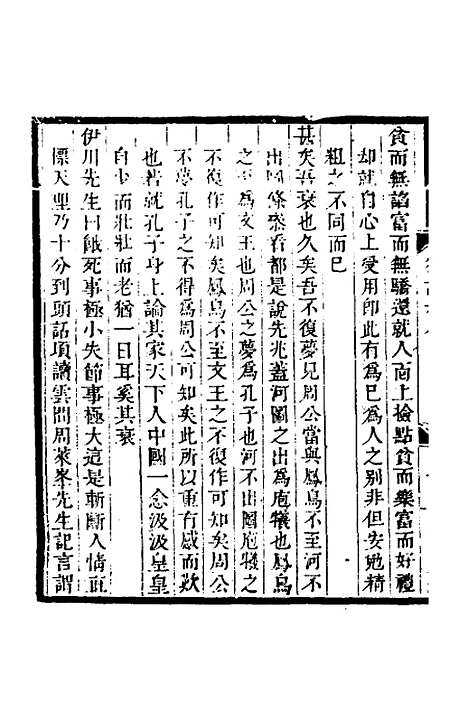 貧而無諂富而無驕還就人面上檢點貧而樂富而好禮
却就自心上受用卽此有爲已爲人之别非但安勉精
粗之不同而已
甚矣吾衰也久矣吾不復夢見周公當與鳳鳥不至河不
出圖條叅看都是說先兆蓋河圖之出爲庖犧也鳳鳥
之至爲文王也周公之夢爲孔子也河不出圖庖犧之
不復作可知矣鳳鳥不至文王之不復作可知矣周公
不夢孔子之不得爲周公可知矣此所以重有感而歎
也若就孔子身上論其家天下人中國一念汲汲皇皇
自少而壯壯而老猶一日耳奚其衰
伊川先生曰餓死事極小失節事極大這是斬斷人情直
標天理乃十分到頭話項讀雲間周萊峯先生記言謂